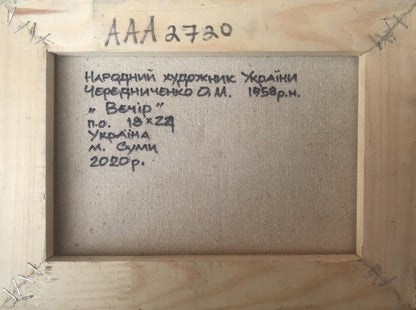 ААА 2720
Народний художник України
Чередниченко О.М. 1958р.н.
„ Вечір”
п.о. 18×24
Україна
м. Суми
2020р.